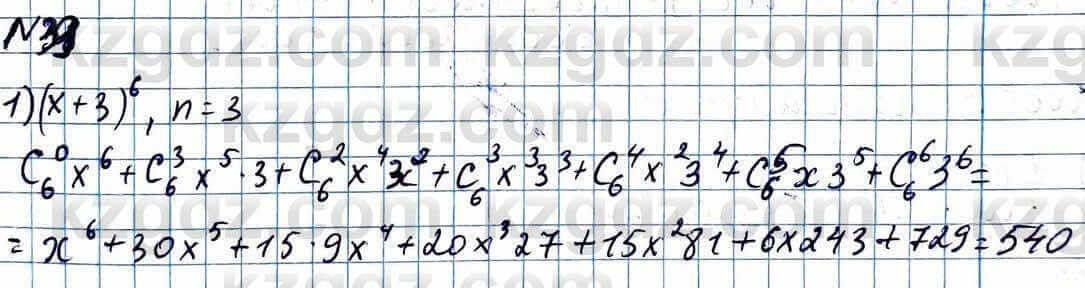 №39
1) (x+3)^6, n=3
C_6^0 x^6 + C_6^3 x^5 · 3 + C_6^2 x^4 3^2 + C_6^3 x^3 3^3 + C_6^4 x^2 3^4 + C_6^5 x 3^5 + C_6^6 3^6 =
= x^6 + 30x^5 + 15 · 9x^4 + 20x^3 27 + 15x^2 81 + 6x243 + 729 = 540
kzgdz.com kzgdz.com
kzgdz.com
kzgdz.com kzgdz.com